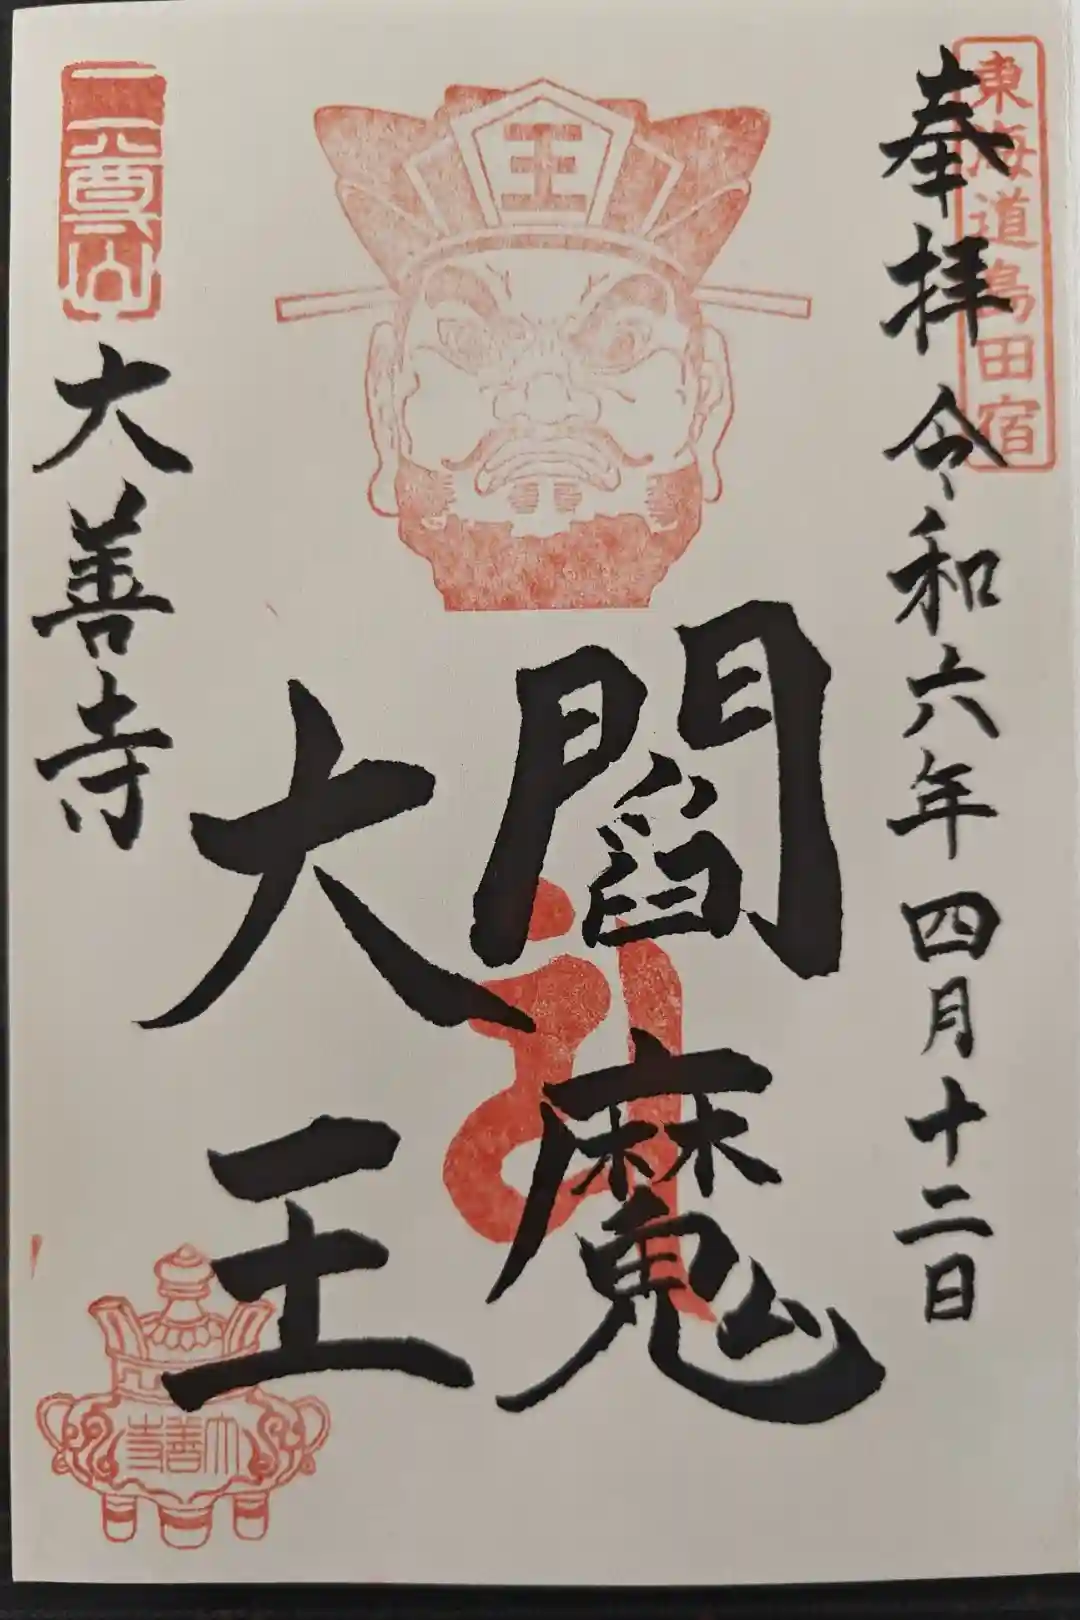 東海道島田宿
奉拝 令和六年四月十二日
王
閻魔
大王
大善寺
大善寺